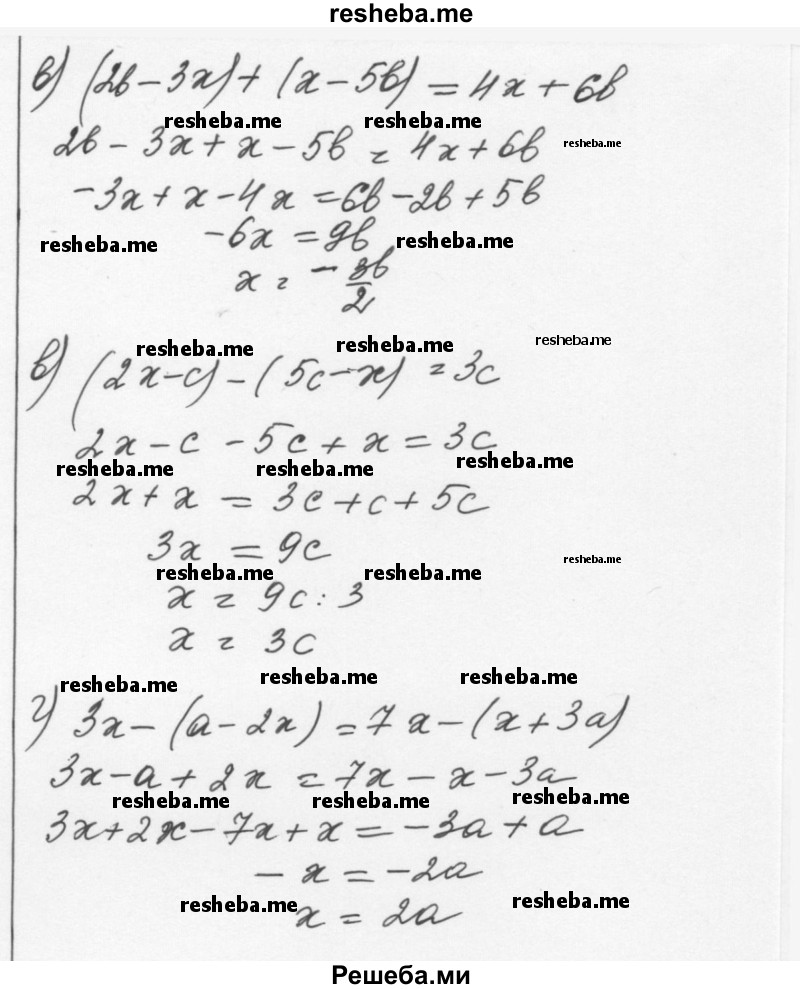 resheba.me
в) (2b - 3x) + (x - 5b) = 4x + 6b
resheba.me resheba.me
2b - 3x + x - 5b = 4x + 6b resheba.me
-3x + x - 4x = 6b - 2b + 5b
resheba.me -6x = 9b resheba.me
x = - 3b/2
resheba.me resheba.me resheba.me
в) (2x - c) - (5c - x) = 3c
2x - c - 5c + x = 3c
resheba.me resheba.me resheba.me
2x + x = 3c + c + 5c
3x = 9c resheba.me
resheba.me resheba.me
x = 9c : 3
x = 3c
resheba.me resheba.me resheba.me
г) 3x - (a - 2x) = 7x - (x + 3a)
3x - a + 2x = 7x - x - 3a
resheba.me resheba.me resheba.me
3x + 2x - 7x + x = -3a + a
- x = -2a
resheba.me resheba.me
x = 2a
Решеба.ми